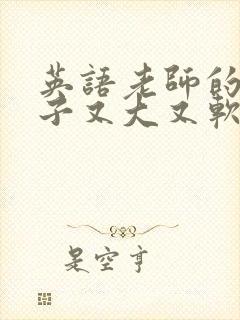 英語老師的
子又大又軟
是空亨